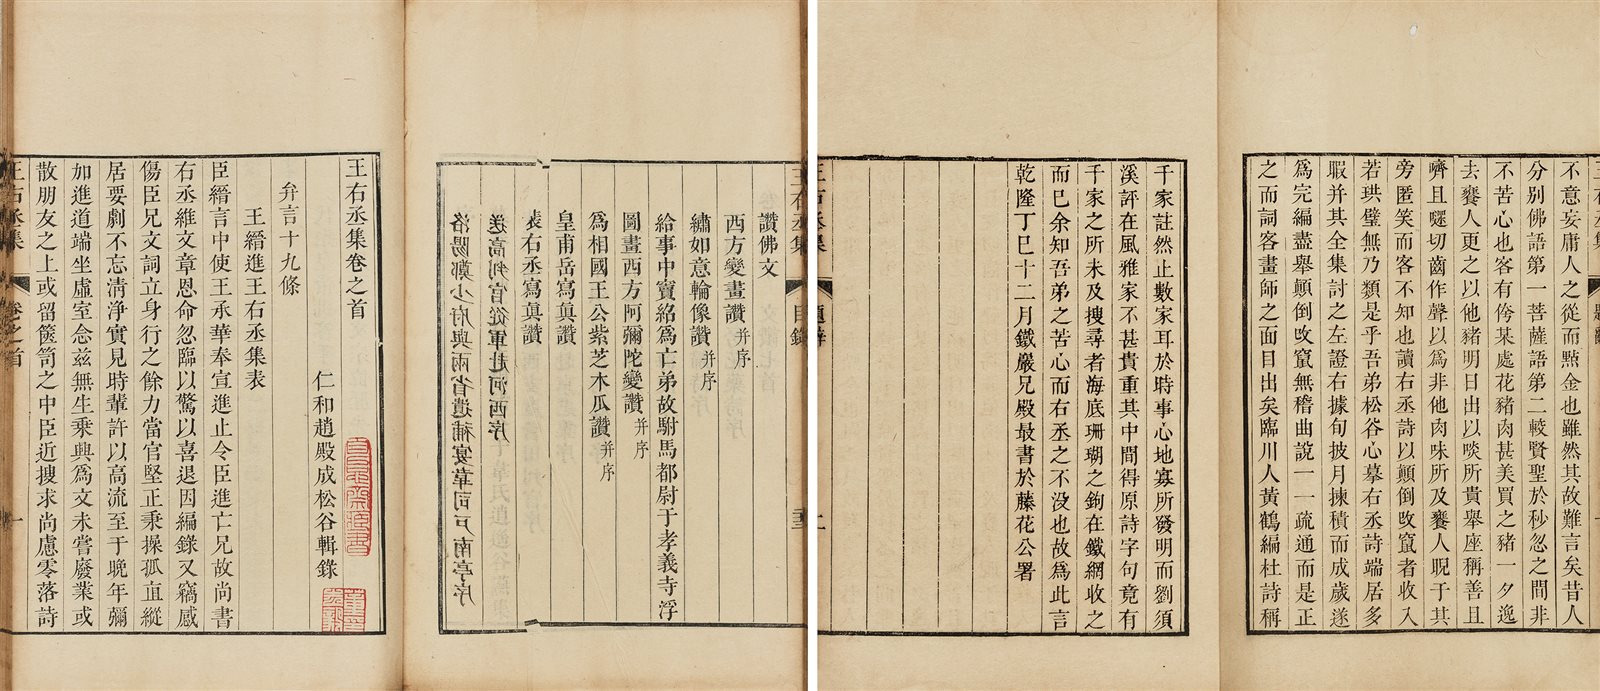 不意妄庸人之從而㸃金也雖然其故難言矣昔人
分别佛語第一菩薩語第二較賢聖於秒忽之間非
不苦心也客有侉某處花豬肉甚美買之豬一夕逸
去饔人更之以他豬明日出以啖所貴舉座稱善且
嚌且嚃切齒作聲以爲非他肉味所及饔人睨于其
旁匿笑而客不知也讀右丞詩以顛倒改竄者收入
若珙璧無乃類是乎吾弟松谷心摹右丞詩端居多
暇并其全集討之左證右據句披月揀積而成歲遂
爲完編盡舉顛倒改竄無稽曲說一一疏通而是正
之而詞客畫師之面目出矣臨川人黄鶴編杜詩稱
千家註然止數家耳於時事心地寡所發明而劉須
溪評在風雅家不甚貴重其中間得原詩字句竟有
千家之所未及搜尋者海底珊瑚之鉤在鐵網收之
而已余知吾弟之苦心而右丞之不没也故爲此言
乾隆丁巳十二月鐵嚴兄殿最書於藤花公署
王右丞集 題辭 二
王右丞集 目錄
讚佛文
西方變畫讚并序
繡如意輪像讚并序
給事中竇紹爲亡弟故駙馬都尉于孝義寺浮
圖畫西方阿彌陀變讚并序
爲相國王公紫芝木瓜讚并序
皇甫岳寫真讚
裴右丞寫真讚
送高判官從軍赴河西序
洛陽鄭少府與兩省遺補宴韋司戶南亭序
王右丞集卷之首
仁和趙殿成松谷輯錄
弁言十九條
王縉進王右丞集表
臣縉言中使王承華奉宣進止令臣進亡兄故尚書
右丞維文章恩命忽臨以驚以喜退因編錄又竊感
傷臣兄文詞立身行之餘力當官堅正秉操孤直縱
居要劇不忘清淨實見時輩許以高流至于晚年彌
加進道端坐虛室念兹無生乘興爲文未嘗廢業或
散朋友之上或留篋笥之中臣近搜求尚慮零落詩
王右丞集 卷之首 一